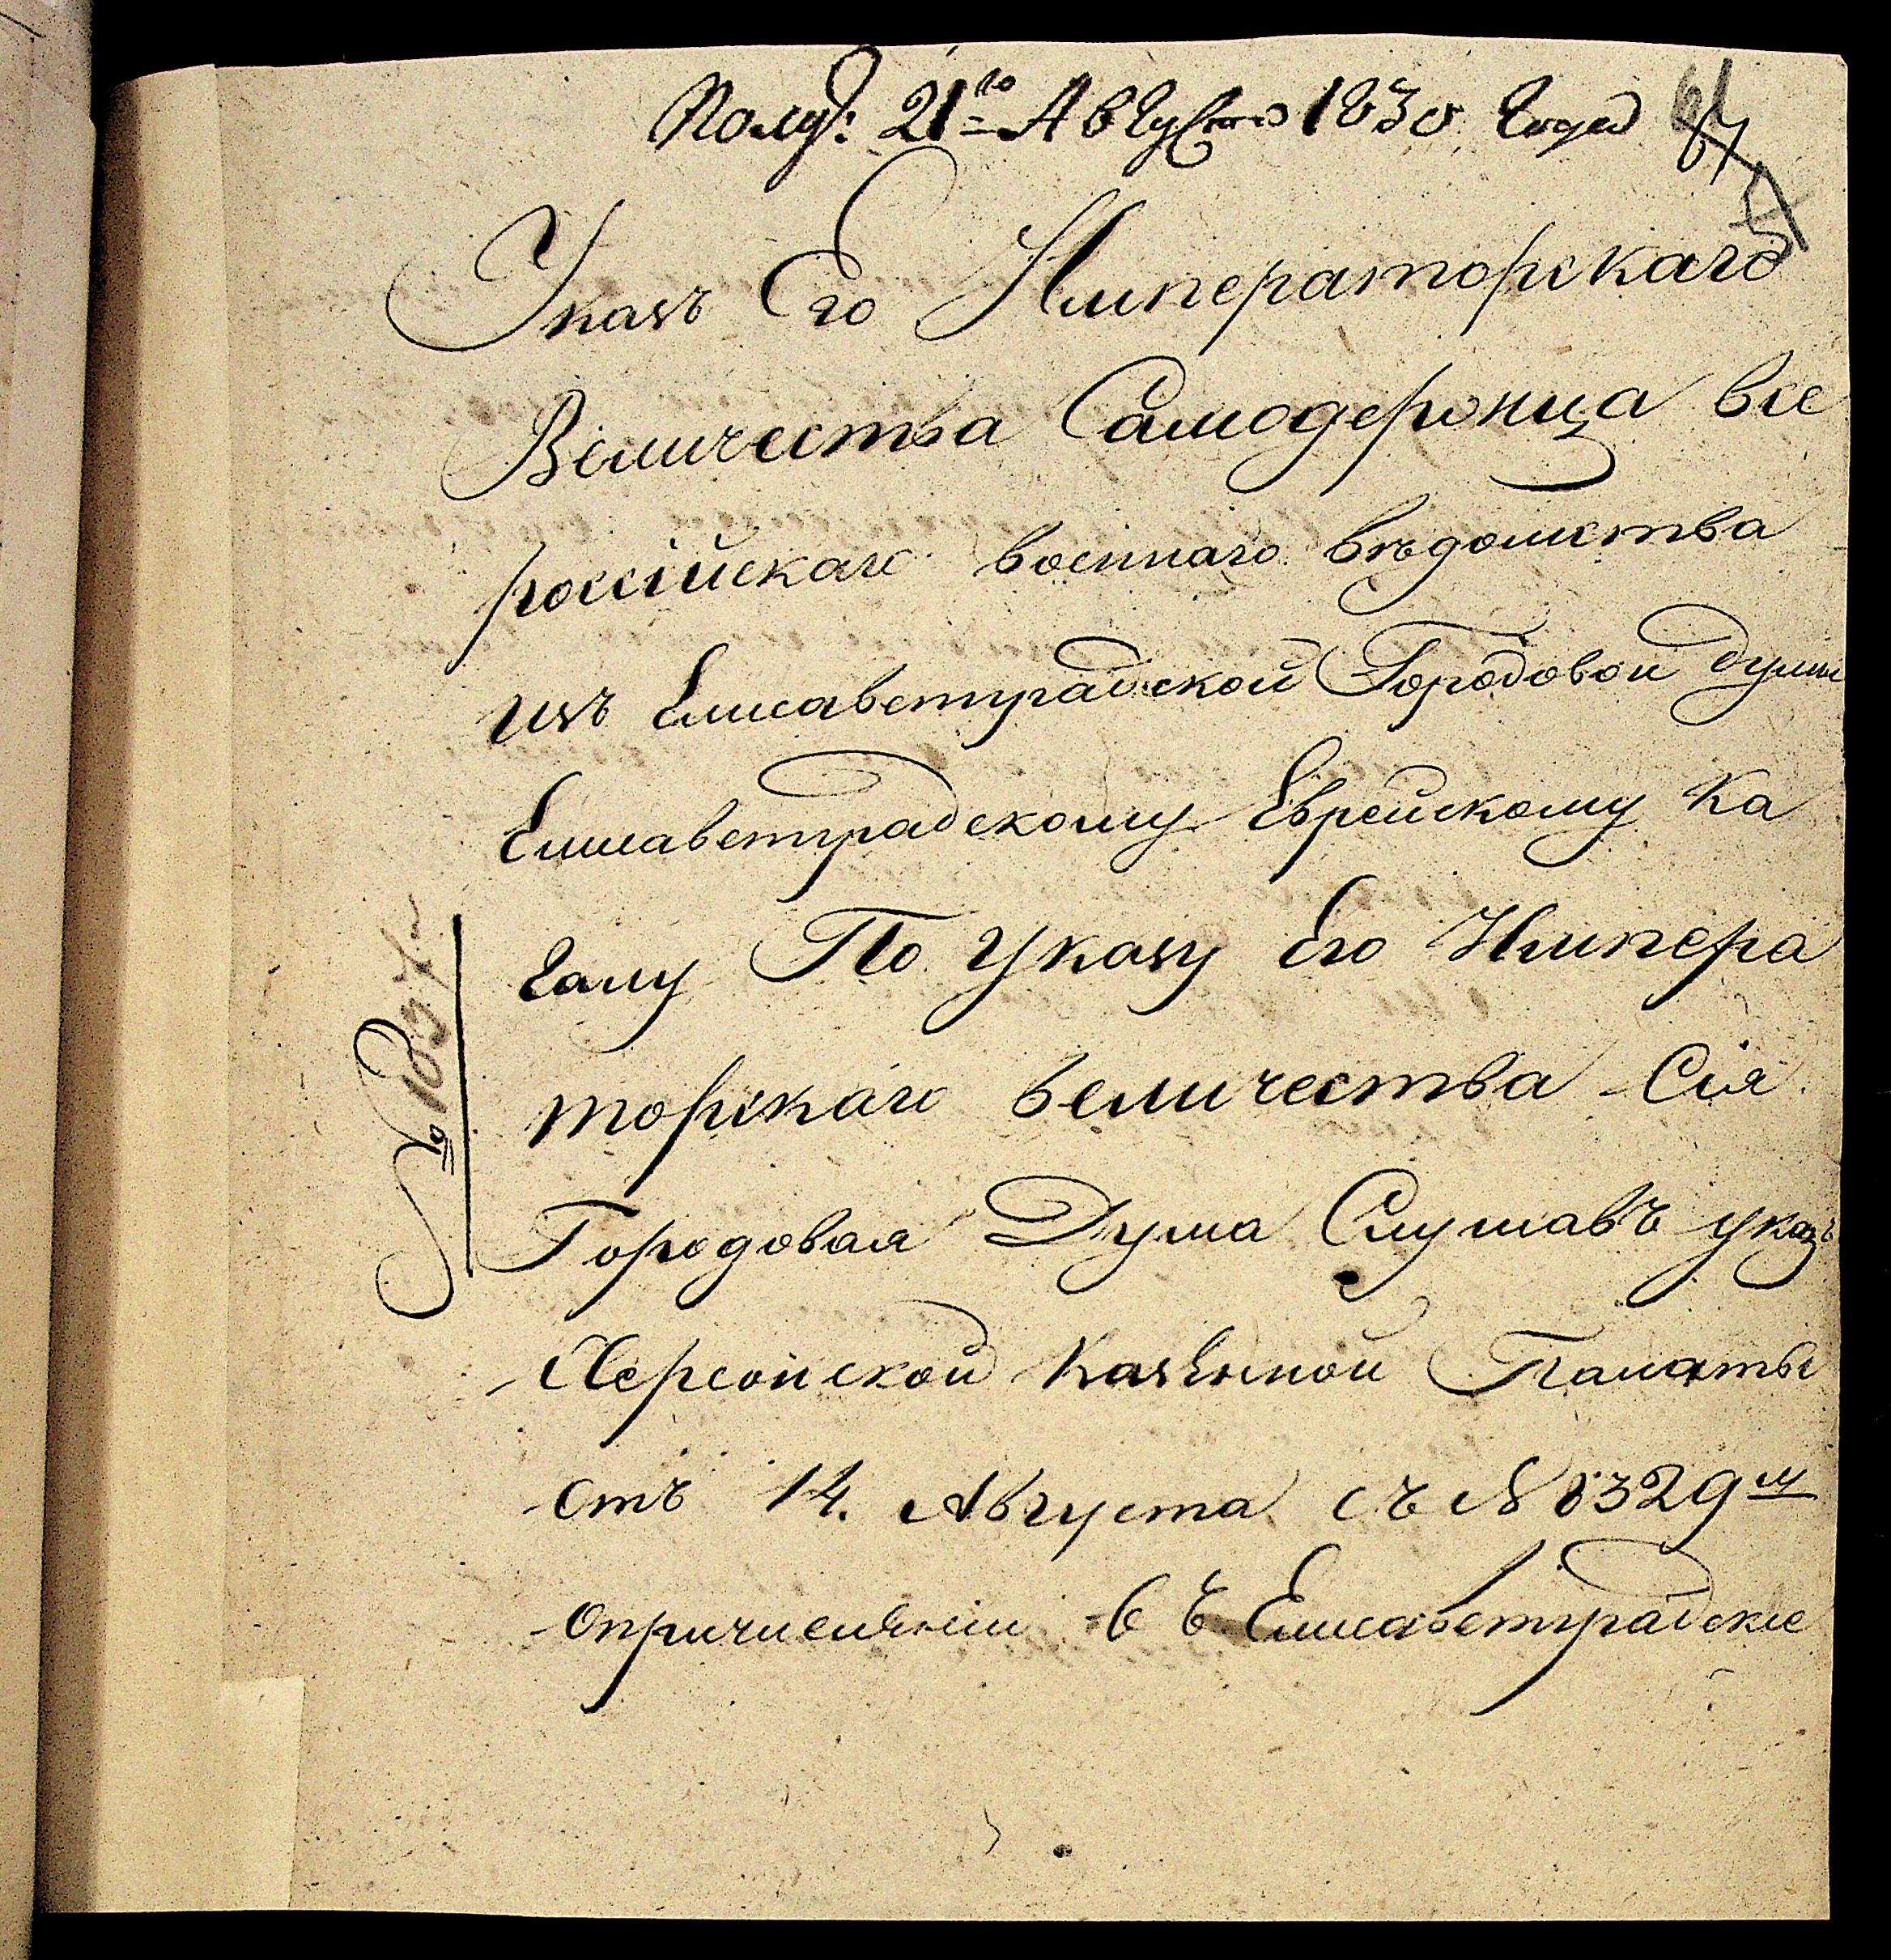 Получ: 21го Августа 1830 Года
Указъ Его Императорскаго
Величества Самодержца все
россійскаго военнаго вѣдомства
изъ Елисаветградской Городовой думы
Елисаветградскому Еврейскому Ка
галу По Указу Его Импера
торскаго величества Сія
Городовая Дума Слушавъ указъ
Херсонской Казенной Палаты
отъ 14. Августа съ № 8329м
опричисленіи въ Елисаветградские